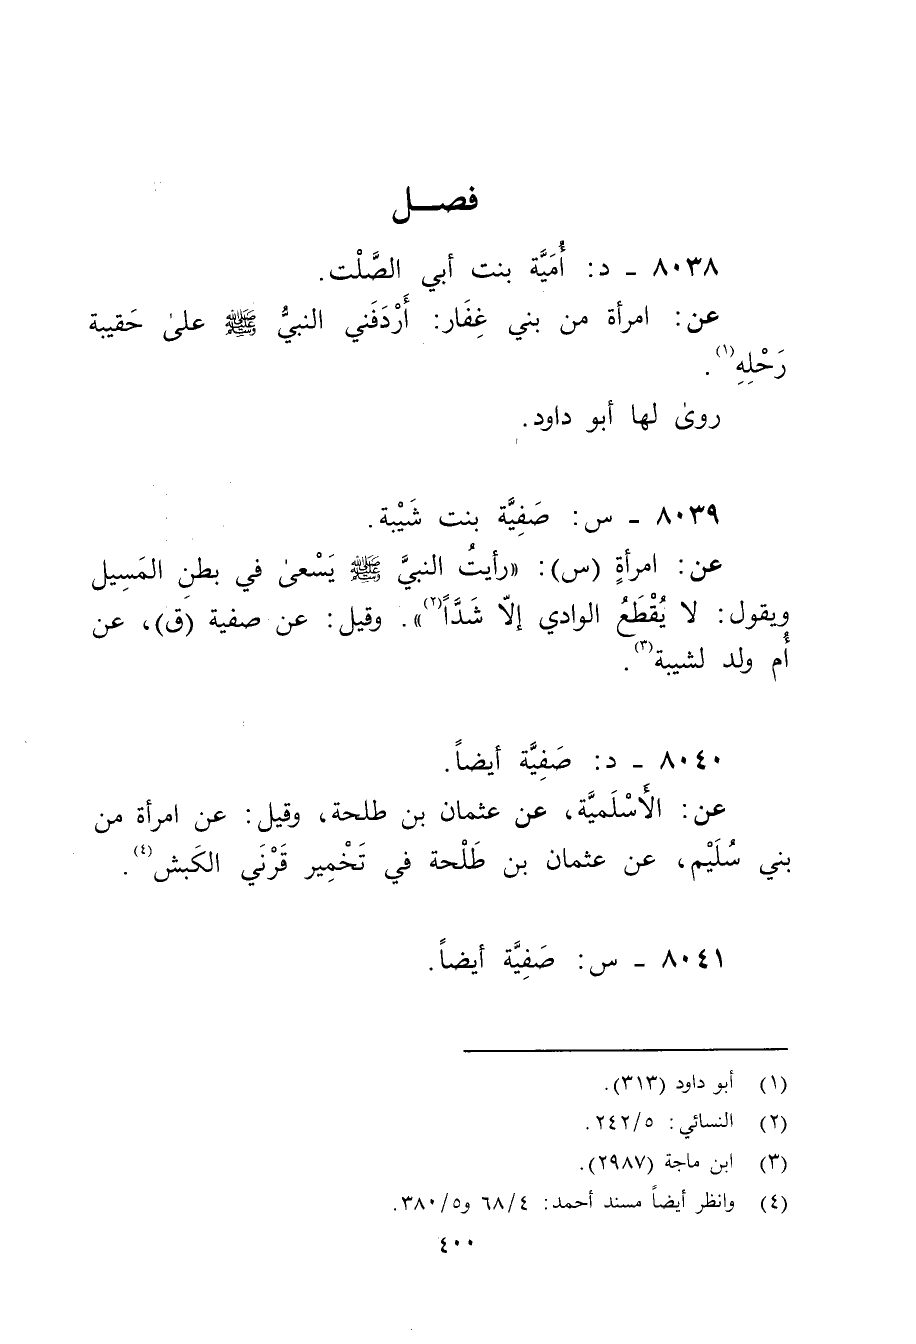 فصـــل
٨٠٣٨ ـ د: أُمَيَّة بنت أبي الصَّلْت.
عن: امرأة من بني غِفَار: أَرْدَفَني النبيُّ ﷺ علىٰ حَقيبة
رَحْلِهِ(١).
روىٰ لها أبو داود.
٨٠٣٩ ـ س: صَفِيَّة بنت شَيْبة.
عن: امرأةٍ (س): «رأيتُ النبيَّ ﷺ يَسْعىٰ في بطنِ المَسِيل
ويقول: لا يُقْطَعُ الوادي إلاّ شَدَّاً(٢)». وقيل: عن صفية (ق)، عن
أُم ولد لشيبة(٣).
٨٠٤٠ ـ د: صَفِيَّة أيضاً.
عن: الأَسْلَميَّة، عن عثمان بن طلحة، وقيل: عن امرأة من
بني سُلَيْم، عن عثمان بن طَلْحة في تَخْمِير قَرْني الكَبش(٤).
٨٠٤١ ـ س: صَفِيَّة أيضاً.
(١) أبو داود (٣١٣).
(٢) النسائي: ٢٤٢/٥.
(٣) ابن ماجة (٢٩٨٧).
(٤) وانظر أيضاً مسند أحمد: ٦٨/٤ و٣٨٠/٥.
٤٠٠